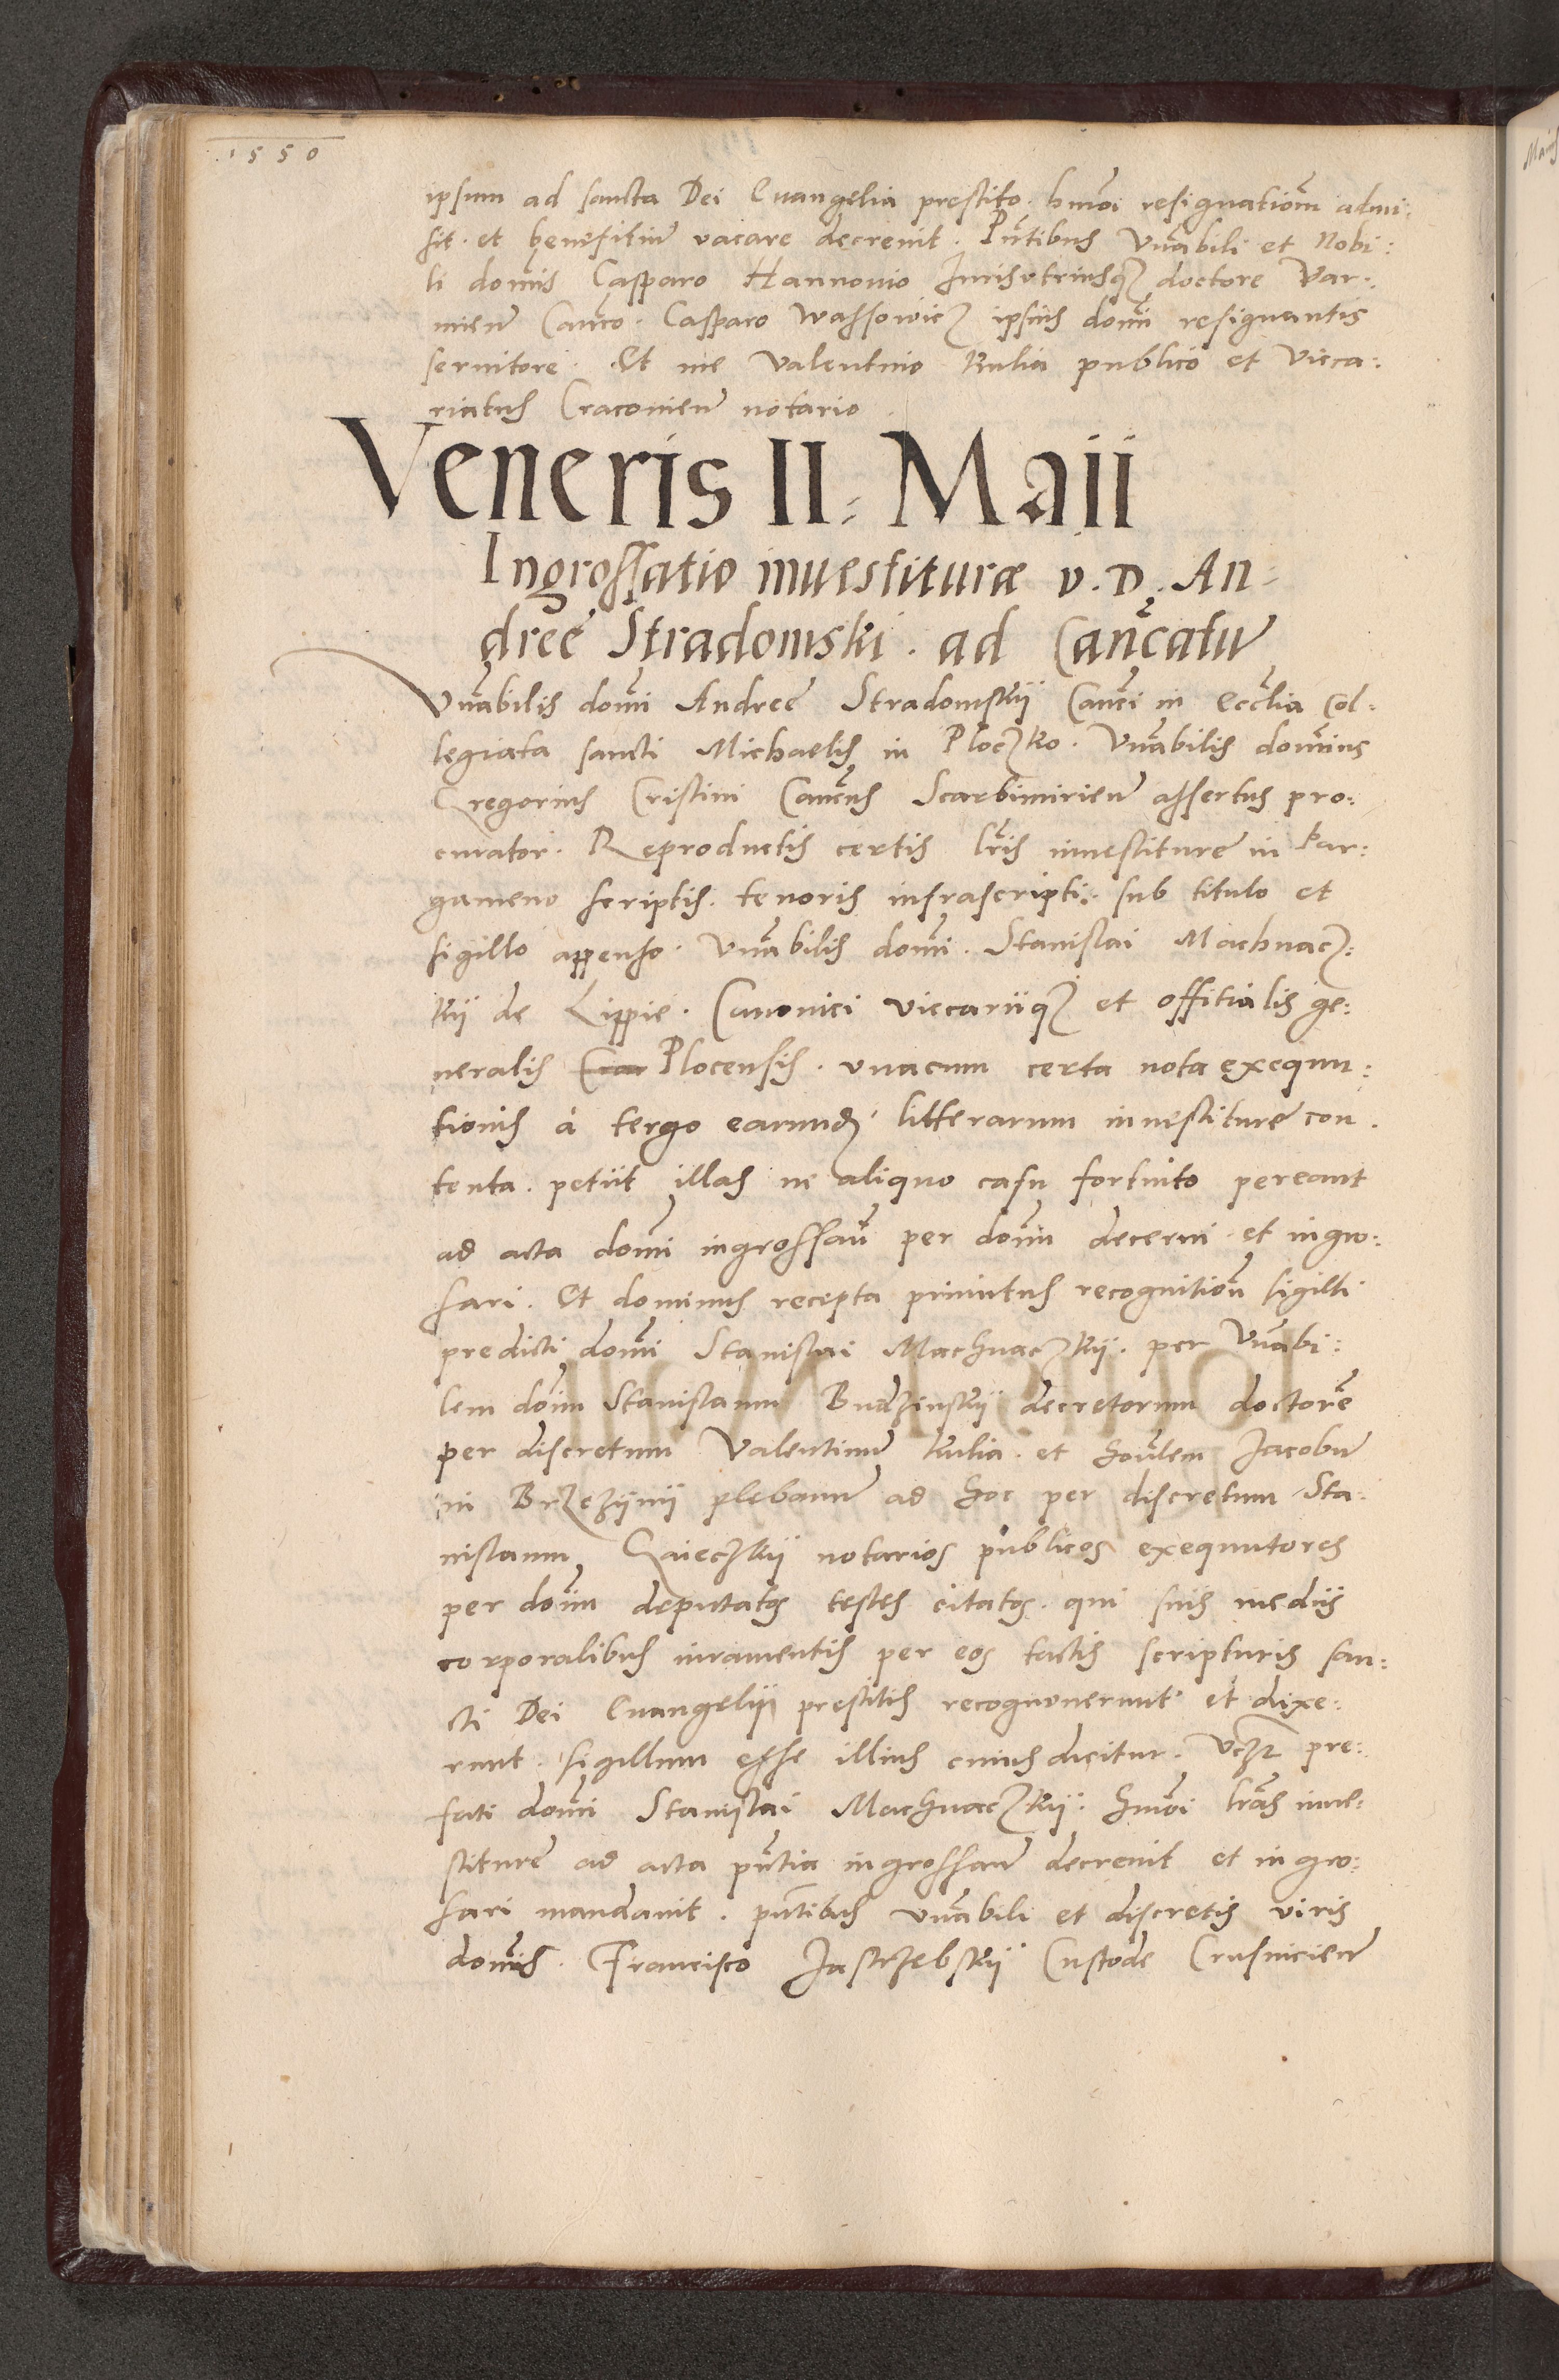 1550
ipsum ad sancta Dei Euangelia prestito. hmōi resignatiōm admi:
sit. et benefitiū vacare decreuit. Pn̄tibus Vn̄abili et Nobi:
li domīs Casparo Hannouio Jurisvtriusq̧ doctore Var:
mieñ Canco. Casparo Wassowicz ipsius domī resignantis
seruitore. Et me Valentino Kulia publico et Vicca:
riatus Cracouieñ notario
Veneris II: Maii
Ingrossatio inuestituræ v. D. An=
dreę Stradomski. ad Cancatū
Vn̄abilis domī Andreę Stradomskij Canci in Ecclia Col:
legiata sancti Michaelis in Ploczko. Vn̄abilis dominus
Gregorius Cristini Cancus Scarbimirieñ assertus pro:
curator. Reproductis certis lr̄is inuestiturę in Par:
gameno scriptis. tenoris infrascripti. sub titulo et
sigillo appenso. Vn̄abilis domī. Stanislai Machnacz:
kij de Lippie. Canonici Viccariiq̧ et offitialis ge:
neralis Cra Plocensis. vnacum certa nota exequu:
tionis à tergo earund̄ litterarum inuestiturę con.
tenta. petiit illas ne aliquo casu fortuito pereant
ad acta domī ingrossañ per domī decerni et ingro:
sari. Et dominus recepta primitus recognitiōn sigilli
predicti domī Stanislai Machnaczkij. per Vn̄abi:
lem domī Stanislaum Budzinskij decretorum doctorē
per discretum Valentinū Kulia. et honīlem Jacobū
in Brzezijnij plebanū ad hoc per discretum Sta:
nislaum Gaieczkij notarios publicos exequutores
per domī deputatos testes citatos. qui suis mediis
corporalibus iuramentis per eos tactis scripturis san:
cti Dei Euangelij prestitis recognouerunt et dixe:
runt. sigillum esse illius cuius dicitur. Vczt pre:
fati domī Stanislai Machnaczkij. hmōi lr̄as inue:
stiturę ad acta pn̄tia ingrossañ decreuit et ingro:
sari mandauit. pn̄tibus Vn̄abili et discretis viris
domīs. Francisco Jastrzebskij Custode Crusuicieñ